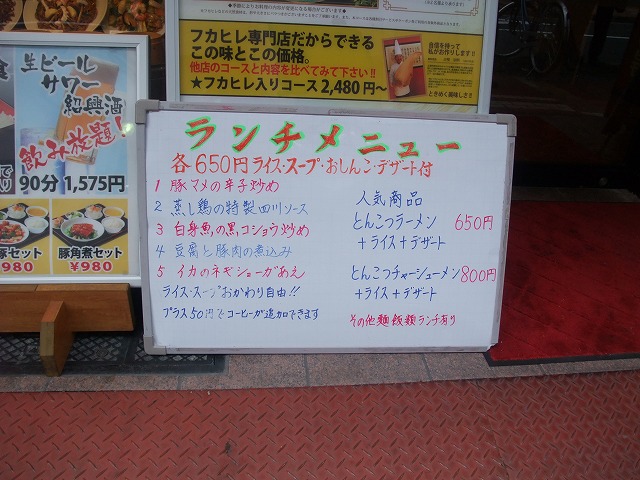 フカヒレ専門店だからできる
この味とこの価格。
他店のコースと内容を比べてみて下さい!!
★フカヒレ入りコース 2,480円~
自信を持って
私がお作りします!
ときめく美味しさ!!
生ビール
サワー
紹興酒
飲み放題!
90分 1,575円
¥980
豚角煮セット
¥980
ランチメニュー
各650円 ライス・スープ・おしんこ・デザート付
1 豚マメの辛子炒め
2 蒸し鶏の特製四川ソース
3 白身魚の黒コショウ炒め
4 豆腐と豚肉の煮込み
5 イカのネギショーガあえ
ライス・スープおかわり自由!!
プラス50円でコーヒーが追加できます
人気商品
とんこつラーメン 650円
+ライス+デザート
とんこつチャーシューメン 800円
+ライス+デザート
その他麺飯類ランチ有り